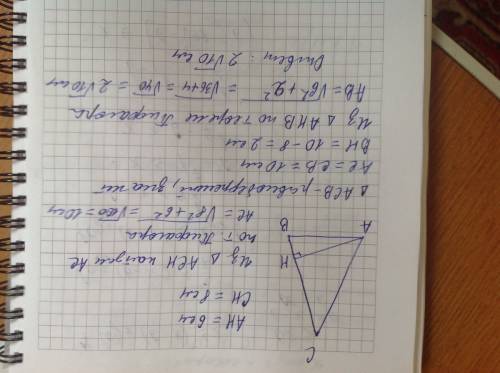 C
H
A
B
AH = 6 см
CH = 8 см
Из △ ACH найдем AC
по т. Пифагора
AC = √8² + 6² = √100 = 10 см
△ ACB – равнобедренный, значит
AC = CB = 10 см
BH = 10 - 8 = 2 см
Из △ AHB по теореме Пифагора
AB = √6² + 2² = √36+4 = √40 = 2√10 см
Ответ: 2√10 см